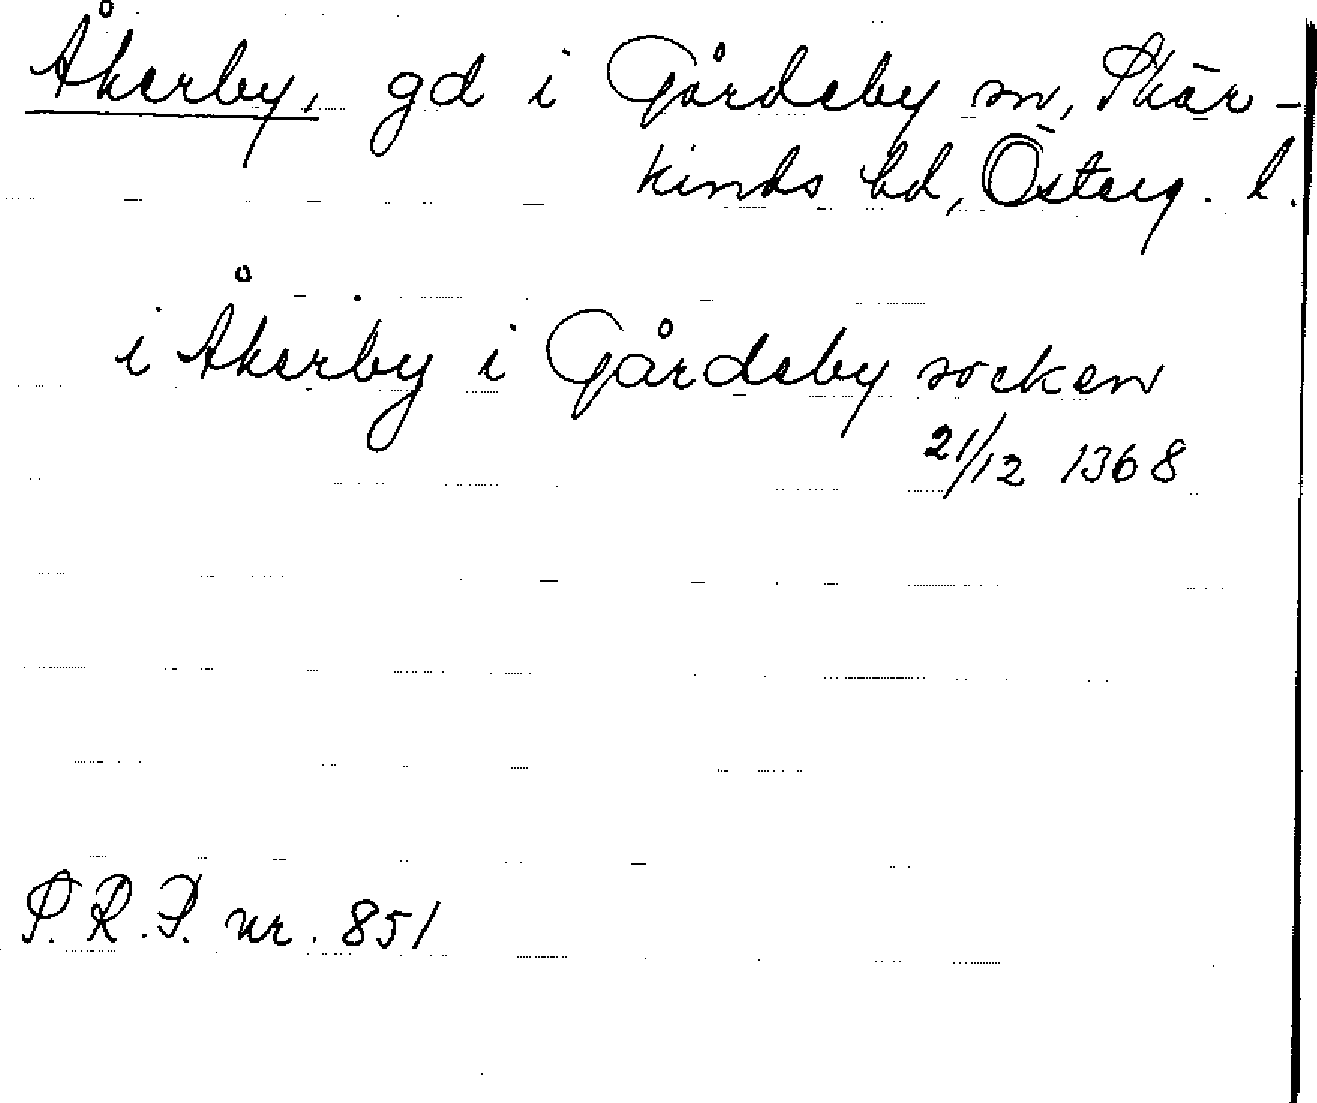 Åkerby, gd i Gårdeby sn, Skär-
kinds hd, Österg. l.
i Åkerby i Gårdeby socken
21/12 1368
P.R.P. nr. 851